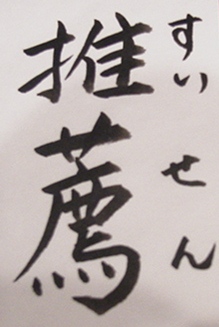 推薦
すいせん